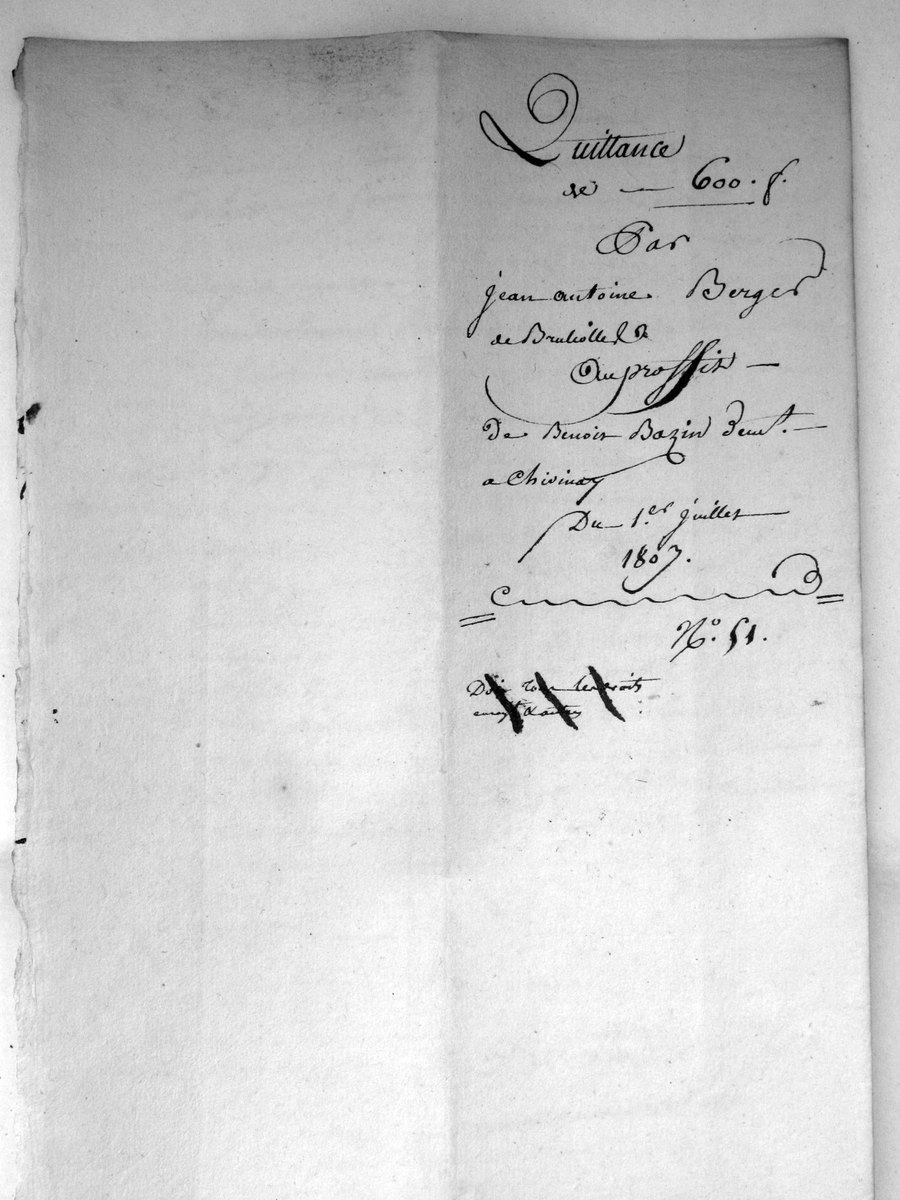 Quittance
de — 600. f.
Par
jean antoine Berger
de Brulliolle
Au proffit —
De Benoit Bazin demt. —
a Chivinay
Du 1.er juillet
1807.
N.o 51.
Doit tous les droits